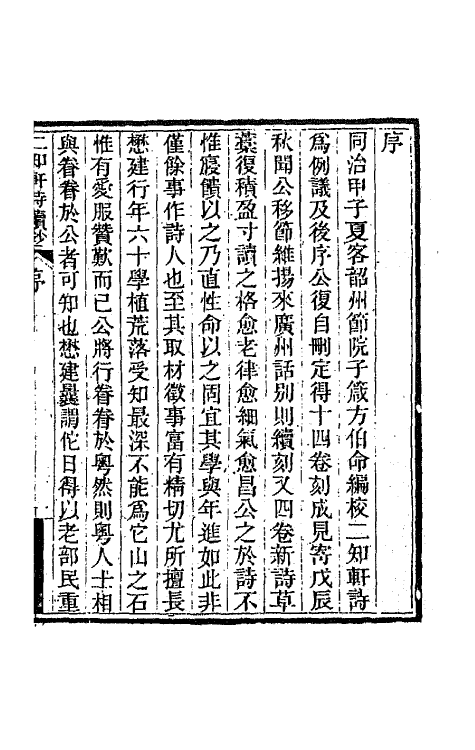 序
同治甲子夏客韶州節院子箴方伯命編校二知軒詩
爲例議及後序公復自刪定得十四卷刻成見寄戊辰
秋聞公移節維揚來廣州話別則續刻又四卷新詩草
藁復積盈寸讀之格愈老律愈細氣愈昌公之於詩不
惟寢饋以之乃直性命以之宐其學與年進如此非
僅餘事作詩人也至其取材徵事富有精切尤所擅長
懋建行年六十學植荒落受知最深不能爲它山之石
惟有愛服贊歎而已公將行眷眷於粵然則粵人士相
與眷眷於公者可知也懋建曩謂佗日得以老部民重
二知軒詩續鈔
序